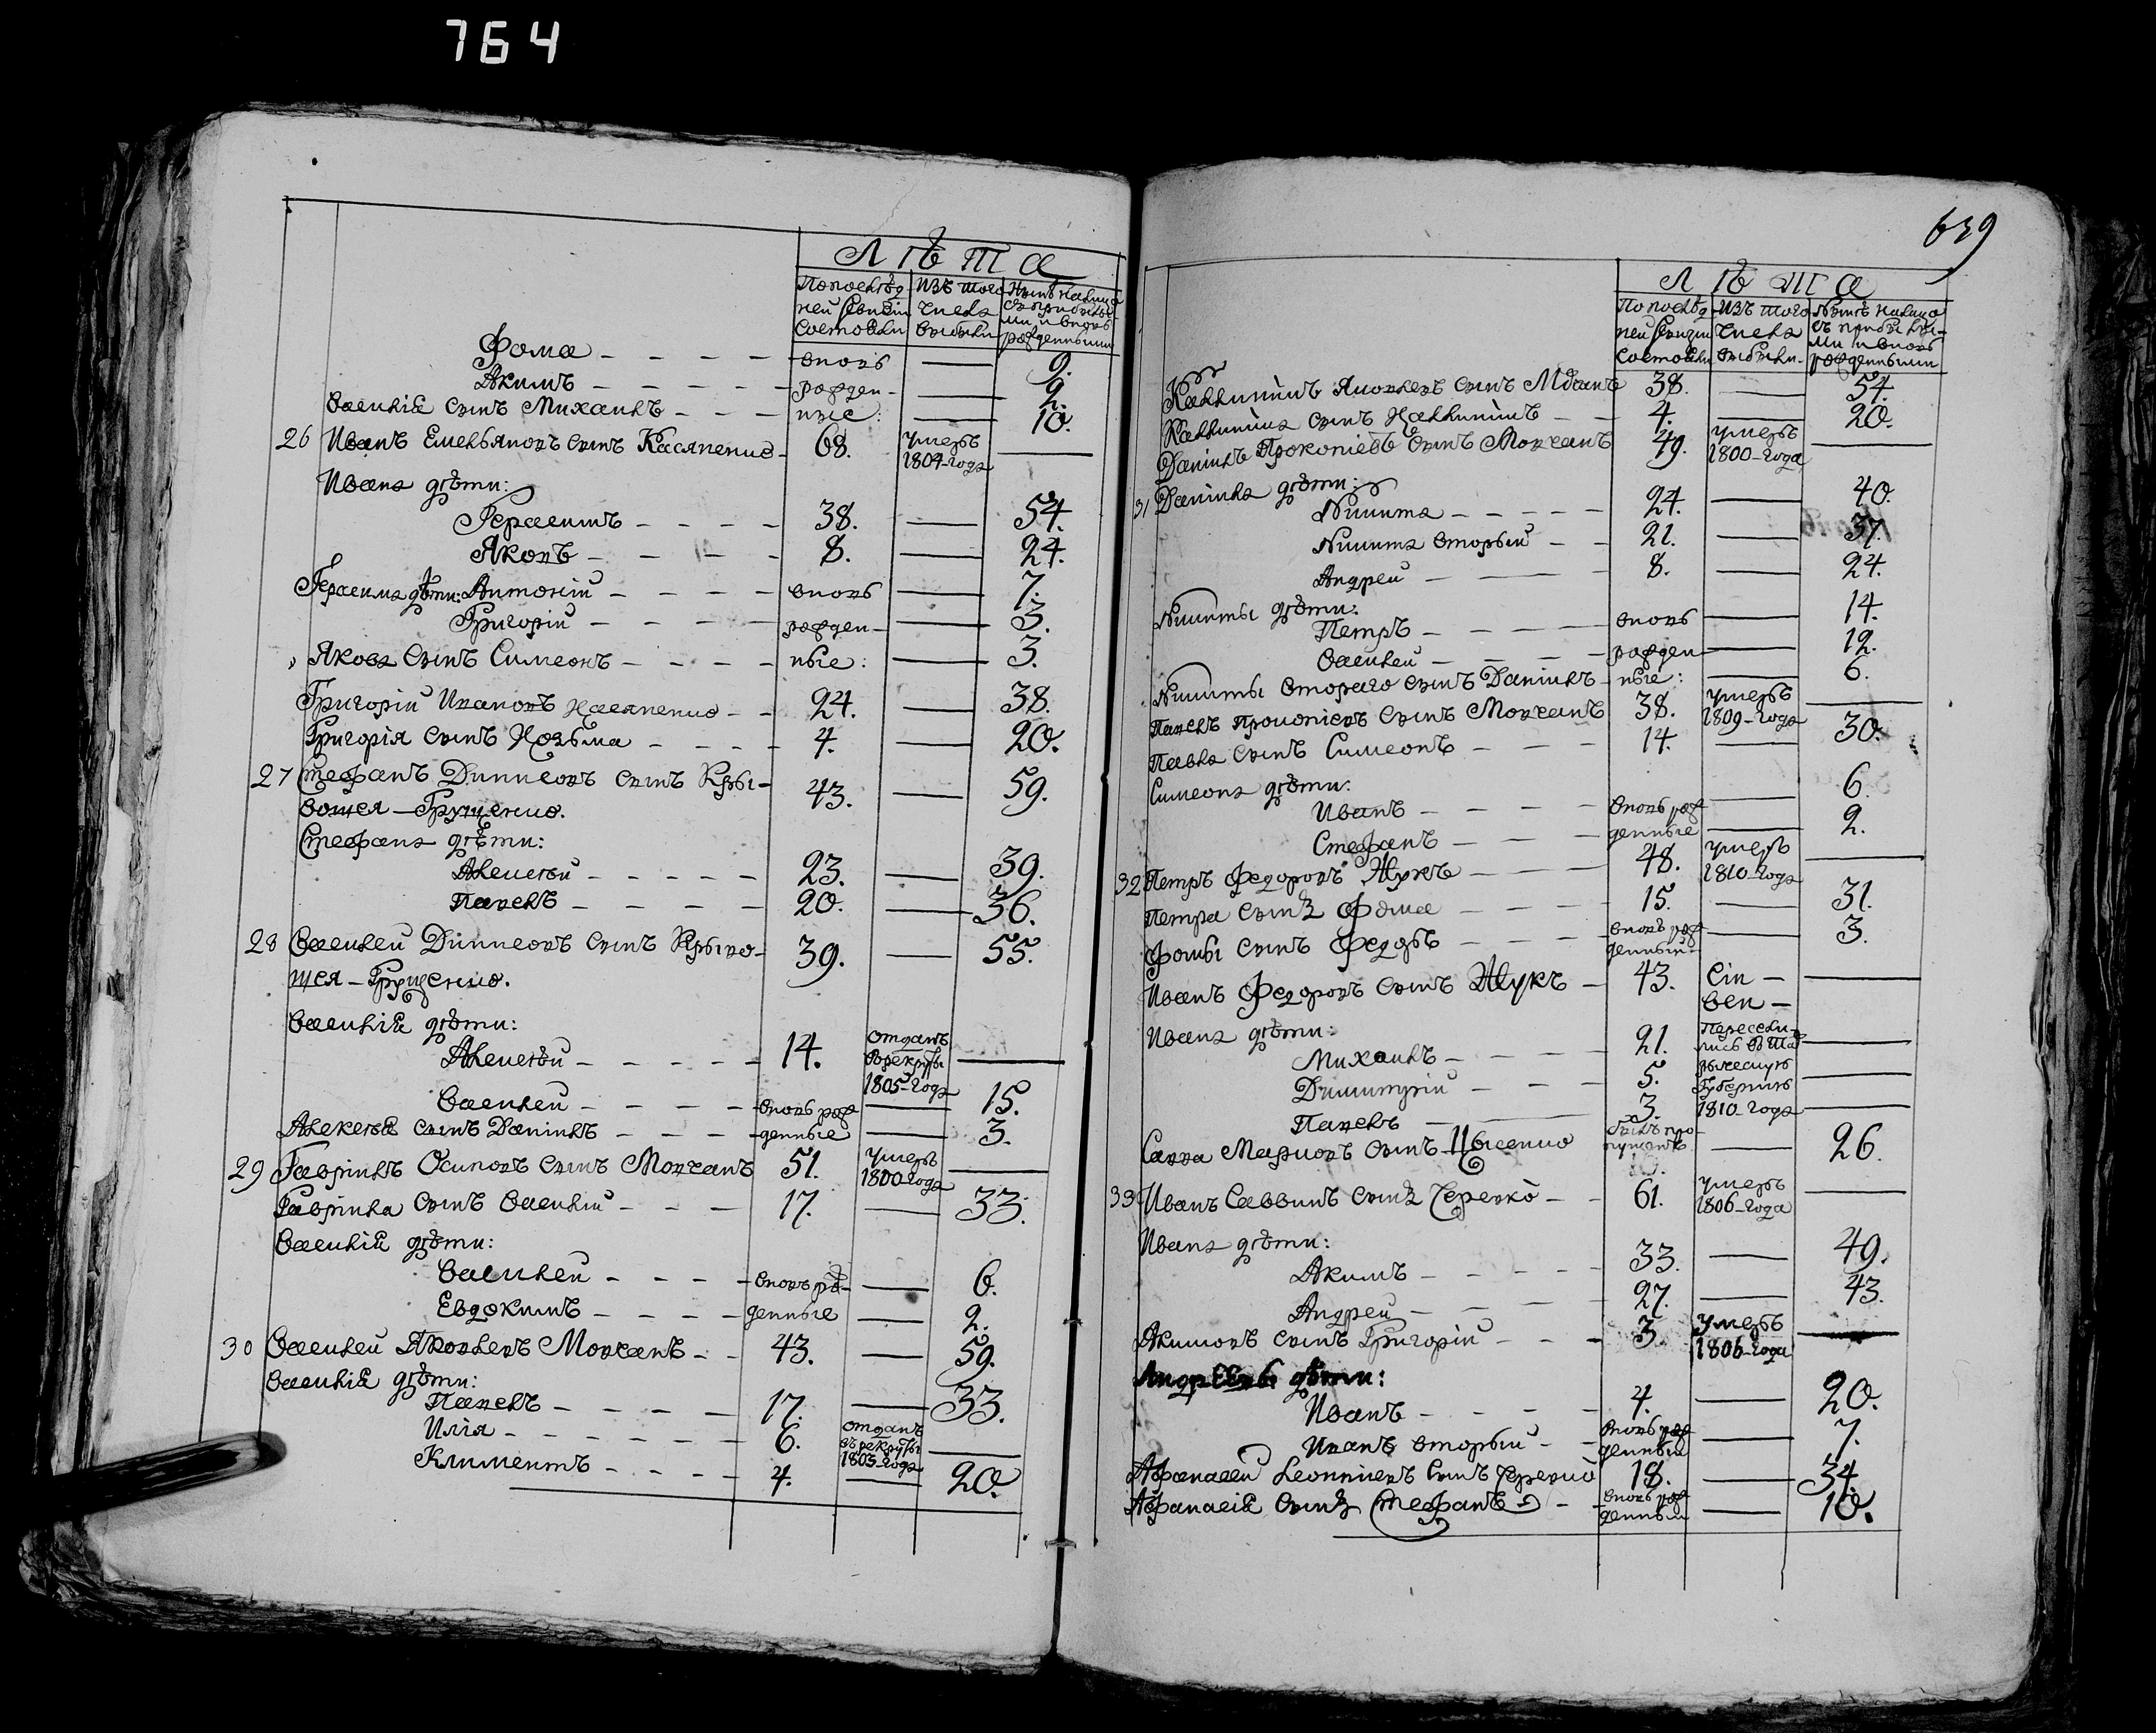 764
Лѣта
По послѣд- Изъ того Нынѣ на лицо
ней ревизіи числа съ прибылы-
состояли выбыли ми и вновь
рожденными
Фома - - - - вновь — 9.
Акимъ - - - - рожден- — 9.
Василія сынъ Михаилъ - - - ные: — 10.
26 Иванъ Емельяновъ сынъ Касяненко - 68. умеръ
1804 года —
Ивана дѣти:
Герасимъ - - - - 38. — 54.
Яковъ - - - - 8. — 24.
Герасима дѣти: Антоній - - - - вновь — 7.
Григорій - - - - рожден- — 3.
Якова сынъ Симеонъ - - - - ные: — 3.
Григорій Ивановъ Касяненко - - 24. — 38.
Григорія сынъ Козьма - - - - 4. — 20.
27 Стефанъ сынъ Кры-
вошея - Грищенко. 43. — 59.
Стефана дѣти:
Алексѣй - - - - - 23. — 39.
Павелъ - - - - 20. — 36.
28 Василей сынъ Крыво-
шея - Грищенко. 39. — 55.
Василія дѣти:
Алексѣй - - - - - 14. отданъ
в рекруты
1805 года —
Василей - - - - вновь рож — 15.
Алексѣя сынъ Данилъ - - - - денные — 3.
29 Гавріилъ Осиповъ сынъ Мовчанъ 51. умеръ
1800 года —
Гавріила сынъ Василій - - - 17. — 33.
Василія дѣти:
Василей - - - - вновь ро- — 6.
Евдокимъ - - - - денные — 2.
30 Василей Яковлевъ Мовчанъ - - 43. — 59.
Василія дѣти:
Павелъ - - - - 17. — 33.
Илія - - - - - - 6. отданъ
въ рекруты
1803 года —
Климентъ - - - - 4. — 20.
639
Лѣта
По послѣд- Изъ того Нынѣ на лицо
ней ревизіи числа съ прибылы-
состояли выбыли- ми и вновь
рожденными
Яковлевъ сынъ 38. — 54.
сынъ - - 4. — 20.
Данилъ Прокопіевъ сынъ Мовчанъ 49. умеръ
1800 года —
31 Данила дѣти:
Никита - - - - - 24. — 40.
Никита вторый - - 21. — 37.
Андрей - — - 8. — 24.
Никиты дѣти:
Петръ - - - - вновь — 14.
Василей - - - - рожден — 12.
Никиты втораго сынъ Данилъ - ные: — 6.
Павелъ Прокопіевъ сынъ Мовчанъ 38. умеръ
1809 года —
Павла сынъ Симеонъ - - - 14. — 30.
Симеона дѣти:
Иванъ - - - - вновь рож — 6.
Стефанъ - - - денные — 2.
32 Петръ Федоровъ Жукъ - - - 48. умеръ
1810 года —
Петра сынъ Фома - - - - 15. — 31.
Фомы сынъ Федоръ - - - - вновь рож
денный — 3.
Иванъ Федоровъ сынъ Жукъ - 43. сіи —
всѣ —
Ивана дѣти:
Михаилъ - - - - 21. пересели-
лись въ —
Димитрій - - - 5. губернію —
Павелъ - 3. 1810 года —
Савва сынъ про-
пущенъ — 26.
33 Иванъ Саввинъ сынъ - - 61. умеръ
1806 года —
Ивана дѣти:
Акимъ - - - - - 33. — 49.
Андрей - - - - 27. — 43.
Акимовъ сынъ Григорій - - - 3. умеръ
1806 года —
дѣти:
Иванъ - - - - 4. — 20.
Иванъ вторый - - вновь рож
денный — 7.
Афанасей сынъ 18. — 34.
Афанасія сынъ Стефанъ - - вновь рож
денный — 10.